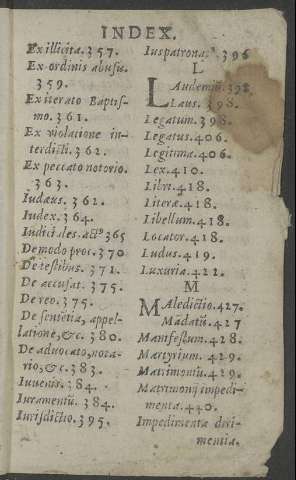 INDEX.
Ex illicita. 357.
Ex ordinis abusu.
359.
Ex iterato Baptis-
mo. 361.
Ex violatione in-
terdicti. 362.
Ex peccato notorio.
363.
Iudæus. 362.
Iudex. 364.
Iudiciales. act9 365
De modo proc. 370
De testibus. 371.
De accusat. 375.
De reo. 375.
De sentētia, appel-
latione, &c. 380.
De aduocato, nota-
rio, &c. 383.
Iuuenis. 384.
Iuramentū. 384.
Iurisdictio. 395.
Ius patronat9. 396
L
LAudemiū. 398.
Laus. 398.
Legatum. 398.
Legatus. 406.
Legitima. 406.
Lex. 410.
Libri. 418.
Literæ. 418.
Libellum. 418.
Locator. 418.
Ludus. 419.
Luxuria. 422.
M
MAledictio. 427.
Mādatū. 427
Manifestum. 428.
Martyrium. 429.
Matrimoniū. 429.
Matrimonij impedi-
menta. 440.
Impedimenta diri-
mentia.